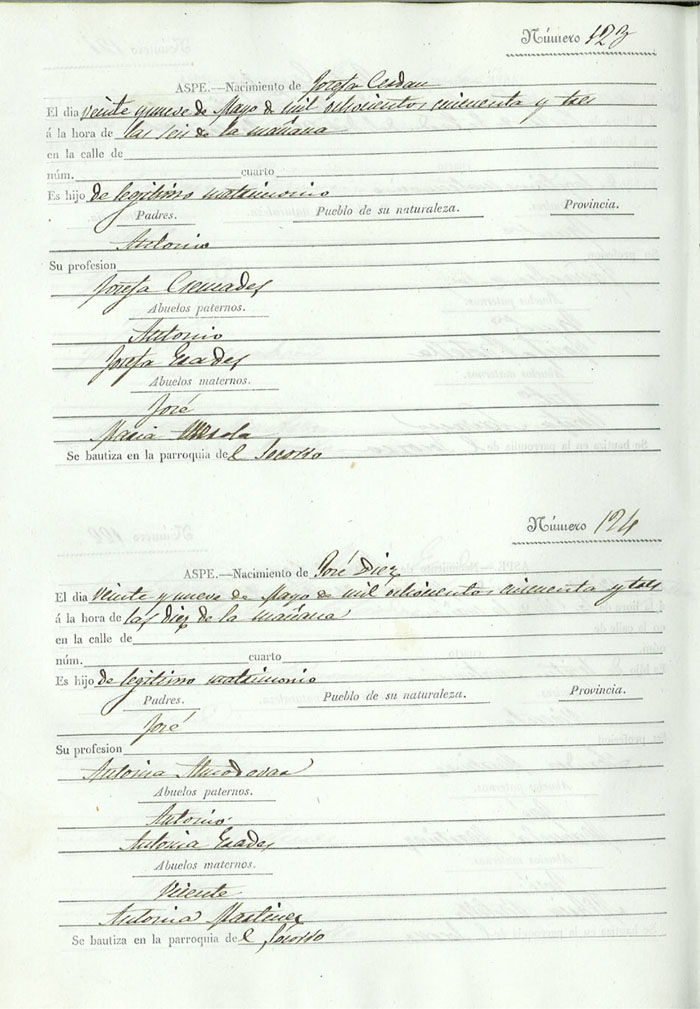 Número 123
ASPE.—Nacimiento de Josefa Cerdan
El dia veinte y nueve de Mayo de mil ochocientos cincuenta y tres
á la hora de las seis de la mañana
en la calle de
núm. cuarto
Es hijo de legitimo matrimonio
Padres. Pueblo de su naturaleza. Provincia.
Antonio
Su profesion
Josefa Cremades
Abuelos paternos.
Antonio
Josefa Erades
Abuelos maternos.
José
Maria
Se bautiza en la parroquia del Socorro
Número 124
ASPE.—Nacimiento de José Diez
El dia veinte y nueve de Mayo de mil ochocientos cincuenta y tres
á la hora de las diez de la mañana
en la calle de
núm. cuarto
Es hijo de legitimo matrimonio
Padres. Pueblo de su naturaleza. Provincia.
José
Su profesion
Antonia Almodovar
Abuelos paternos.
Antonio
Antonia Erades
Abuelos maternos.
Vicente
Antonia Martinez
Se bautiza en la parroquia del Socorro